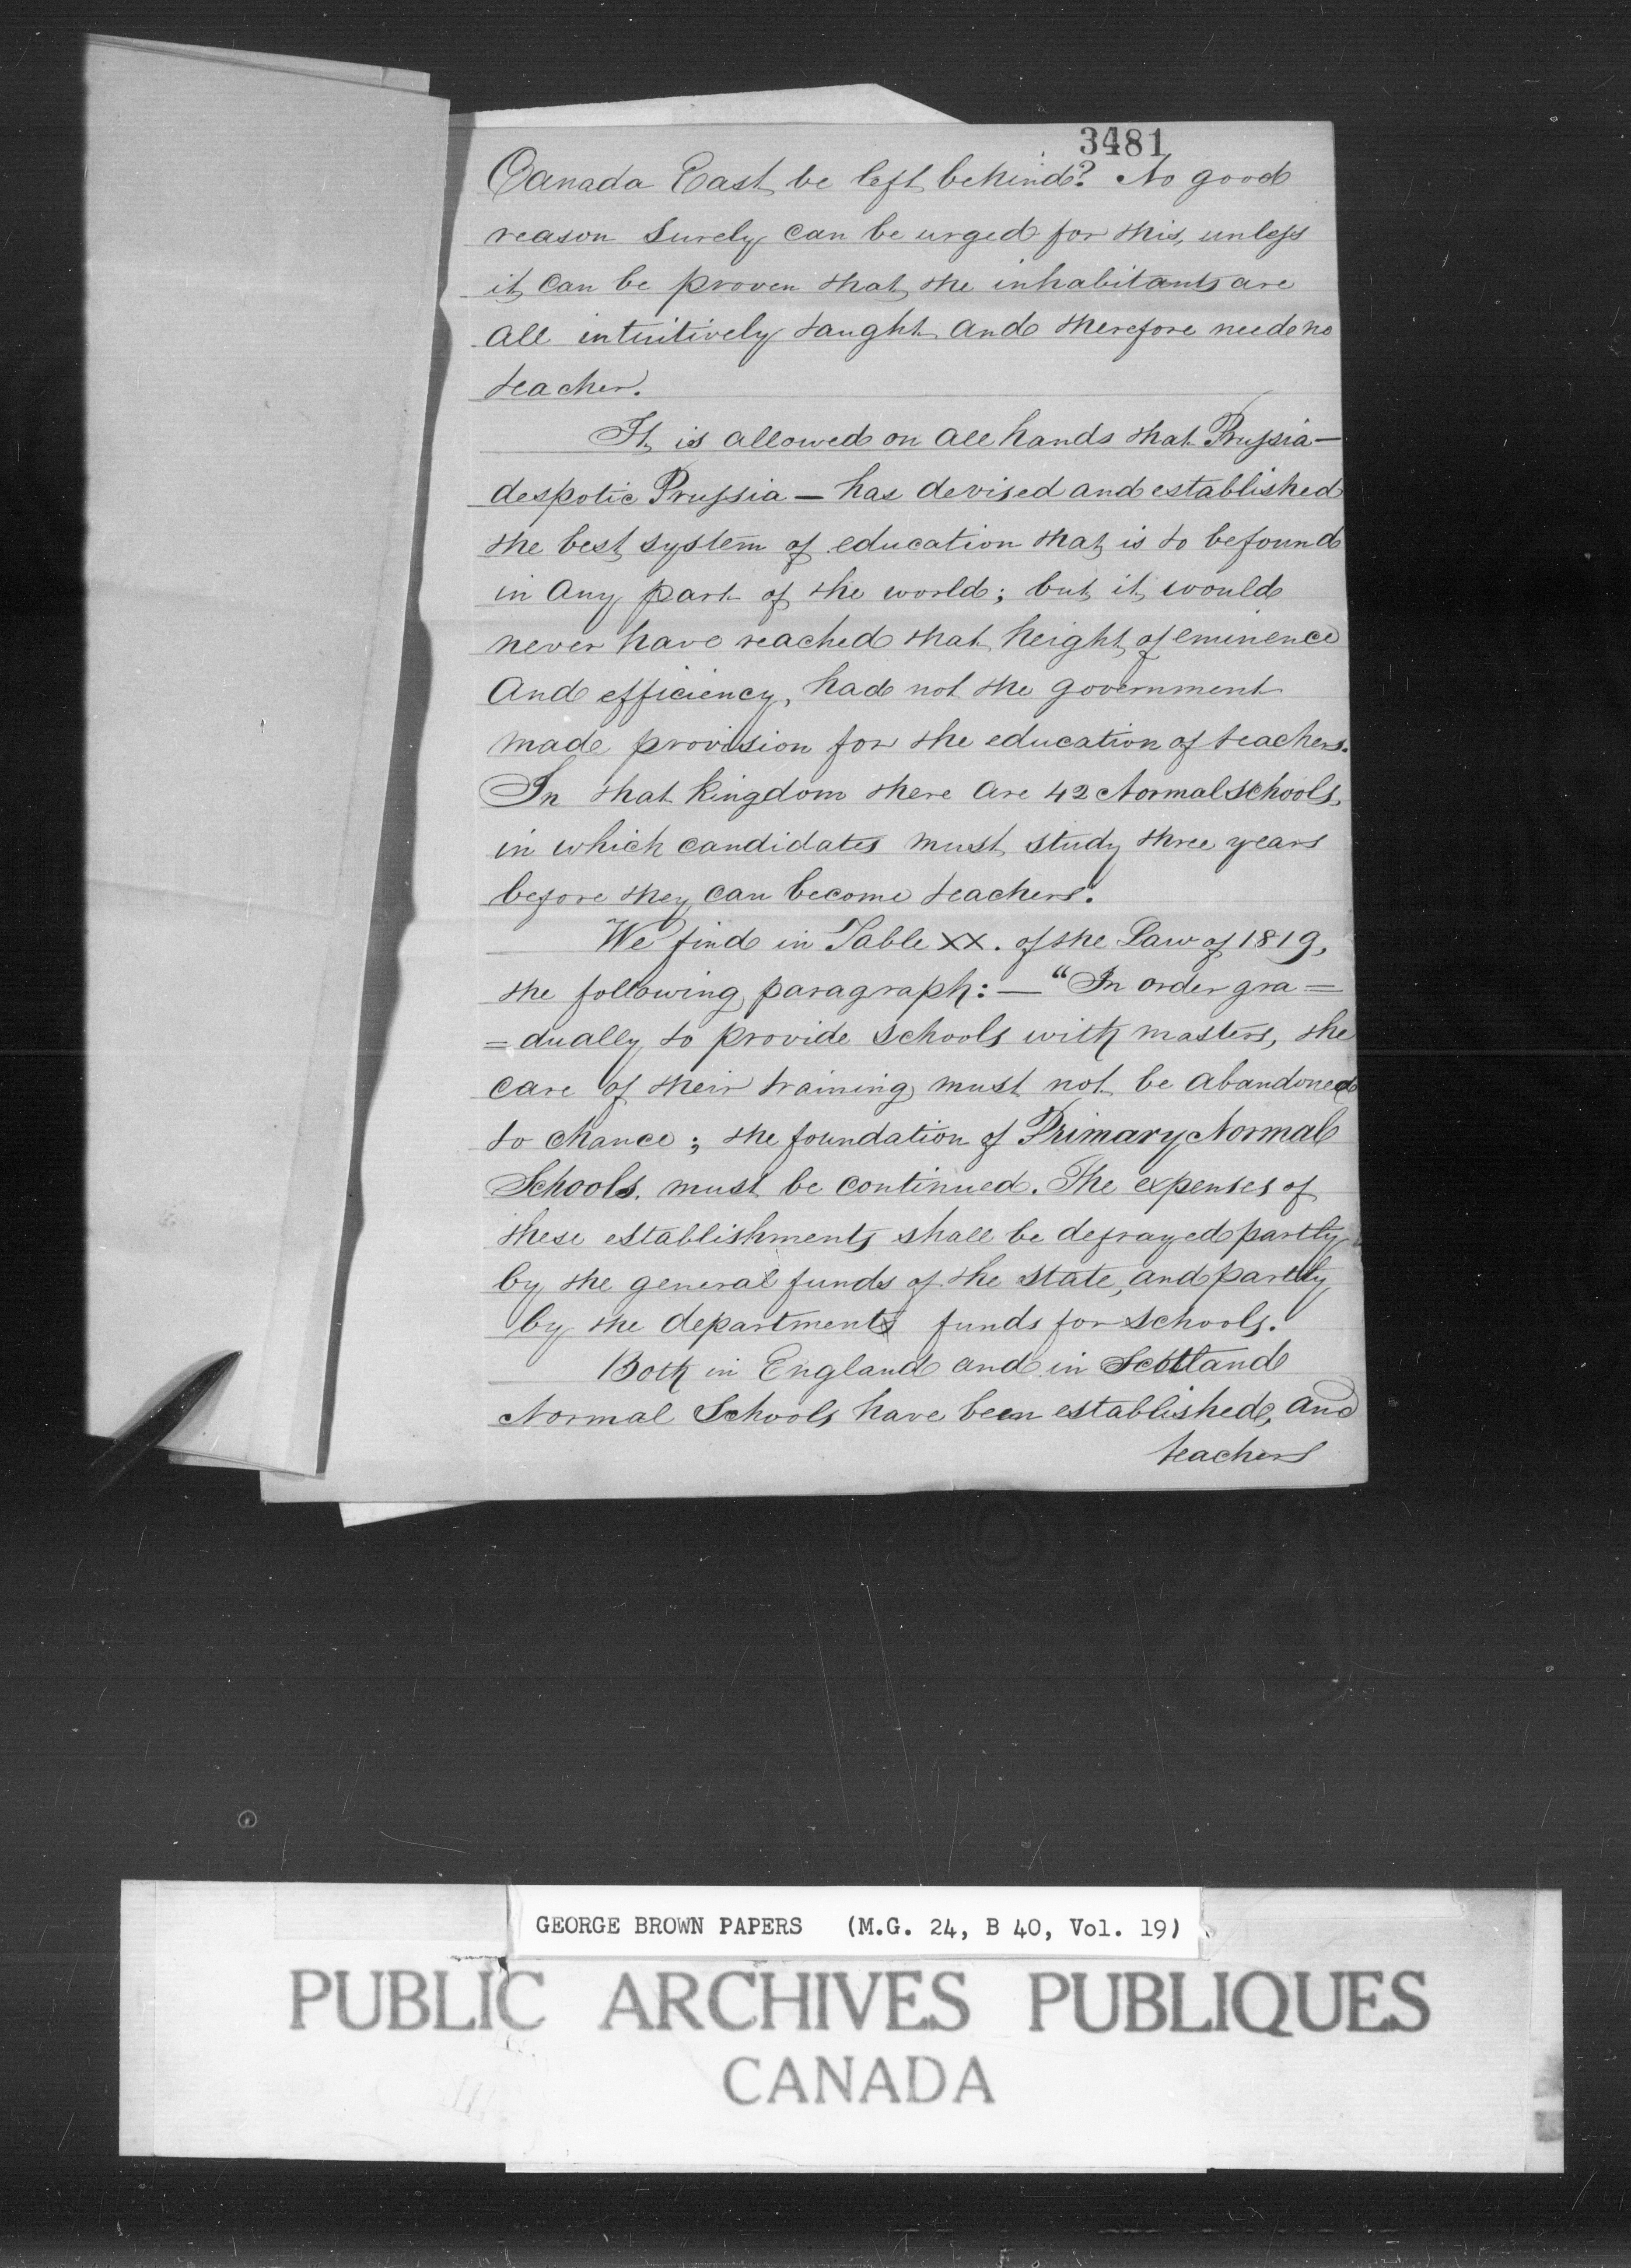 3481
Canada East be left behind? No good
reason surely can be urged for this, unless
it can be proven that the inhabitants are
all intuitively taught and therefore need no
teacher.
It is allowed on all hands that Prussia —
despotic Prussia — has devised and established
the best system of education that is to be found
in any part of the world; but it would
never have reached that height of eminence
and efficiency, had not the government
made provision for the education of teachers.
In that kingdom there are 42 Normal schools,
in which candidates must study three years
before they can become teachers.
We find in Table XX. of the Law of 1819,
the following paragraph: — "In order gra=
=dually to provide schools with masters, the
care of their training must not be abandoned
to chance; the foundation of Primary Normal
Schools must be continued. The expenses of
these establishments shall be defrayed partly
by the general funds of the state, and partly
by the departments funds for schools.
Both in England and in Scotland
Normal Schools have been established, and
teachers
GEORGE BROWN PAPERS (M.G. 24, B 40, Vol. 19)
PUBLIC ARCHIVES PUBLIQUES
CANADA